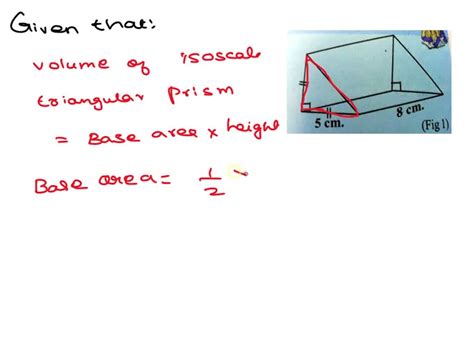 Given that:
volume of isoscale
triangular prism
= Base area x height
Base area = 1/2 x
5 cm.
8 cm.
(Fig1)